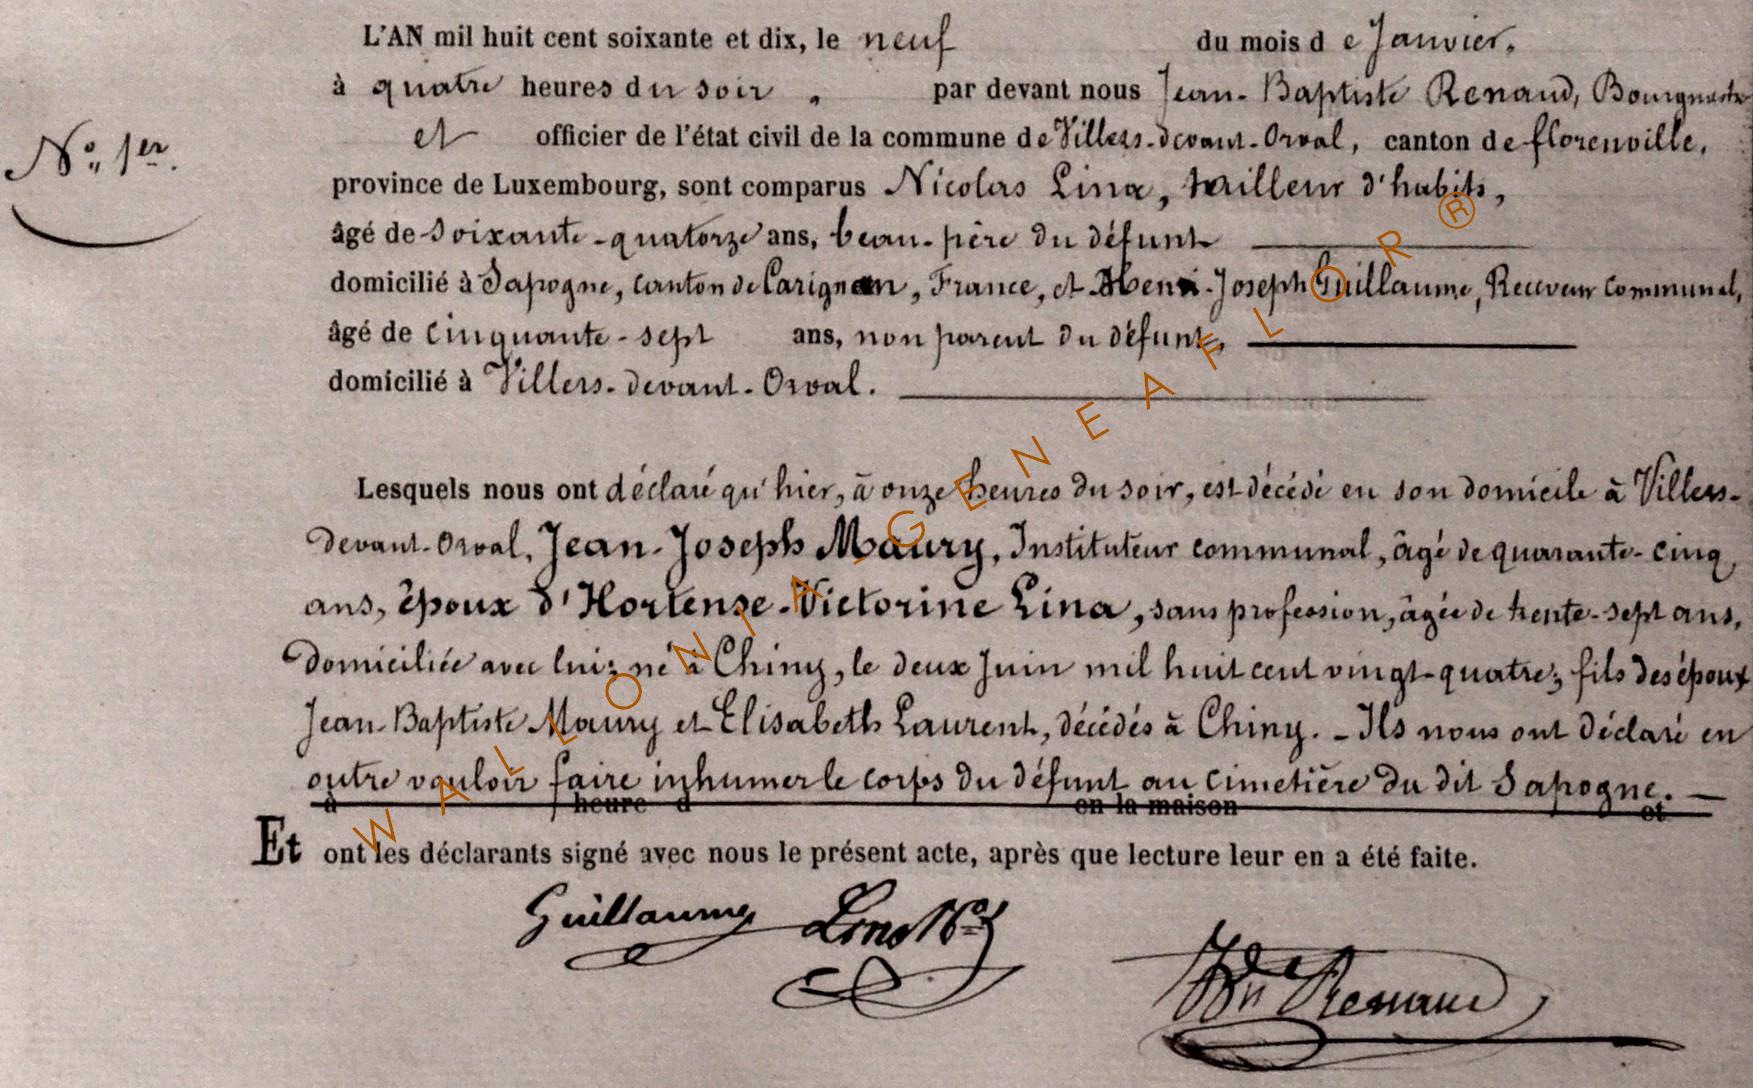 L'AN mil huit cent soixante et dix, le neuf du mois de Janvier.
à quatre heures du soir, par devant nous Jean-Baptiste Renaud, Bourgmestre
N° 1er.
et officier de l'état civil de la commune de Villers-devant-Orval, canton de florenville,
province de Luxembourg, sont comparus Nicolas Lina, tailleur d'habits,
âgé de soixante-quatorze ans, beau-père du défunt
domicilié à Sapogne, canton de Carignan, France, et Henri-Joseph Guillaume, Receveur communal,
âgé de cinquante-sept ans, non parent du défunt,
domicilié à Villers-devant-Orval.
Lesquels nous ont déclaré qu'hier, à onze heures du soir, est décédé en son domicile à Villers-
devant-Orval, Jean-Joseph Maury, Instituteur communal, âgé de quarante-cinq
ans, époux d'Hortense-Victorine Lina, sans profession, âgée de trente-sept ans,
domiciliée avec lui; né à Chiny, le deux Juin mil huit cent vingt-quatre; fils des époux
Jean-Baptiste Maury et Elisabeth Laurent, décédés à Chiny. - Ils nous ont déclaré en
outre vouloir faire inhumer le corps du défunt au cimetière du dit Sapogne. —
à heure d en la maison et
Et ont les déclarants signé avec nous le présent acte, après que lecture leur en a été faite.
Guillaume Lina Nas
JBte Renaud
WALLONIA-GENEAFLOR®